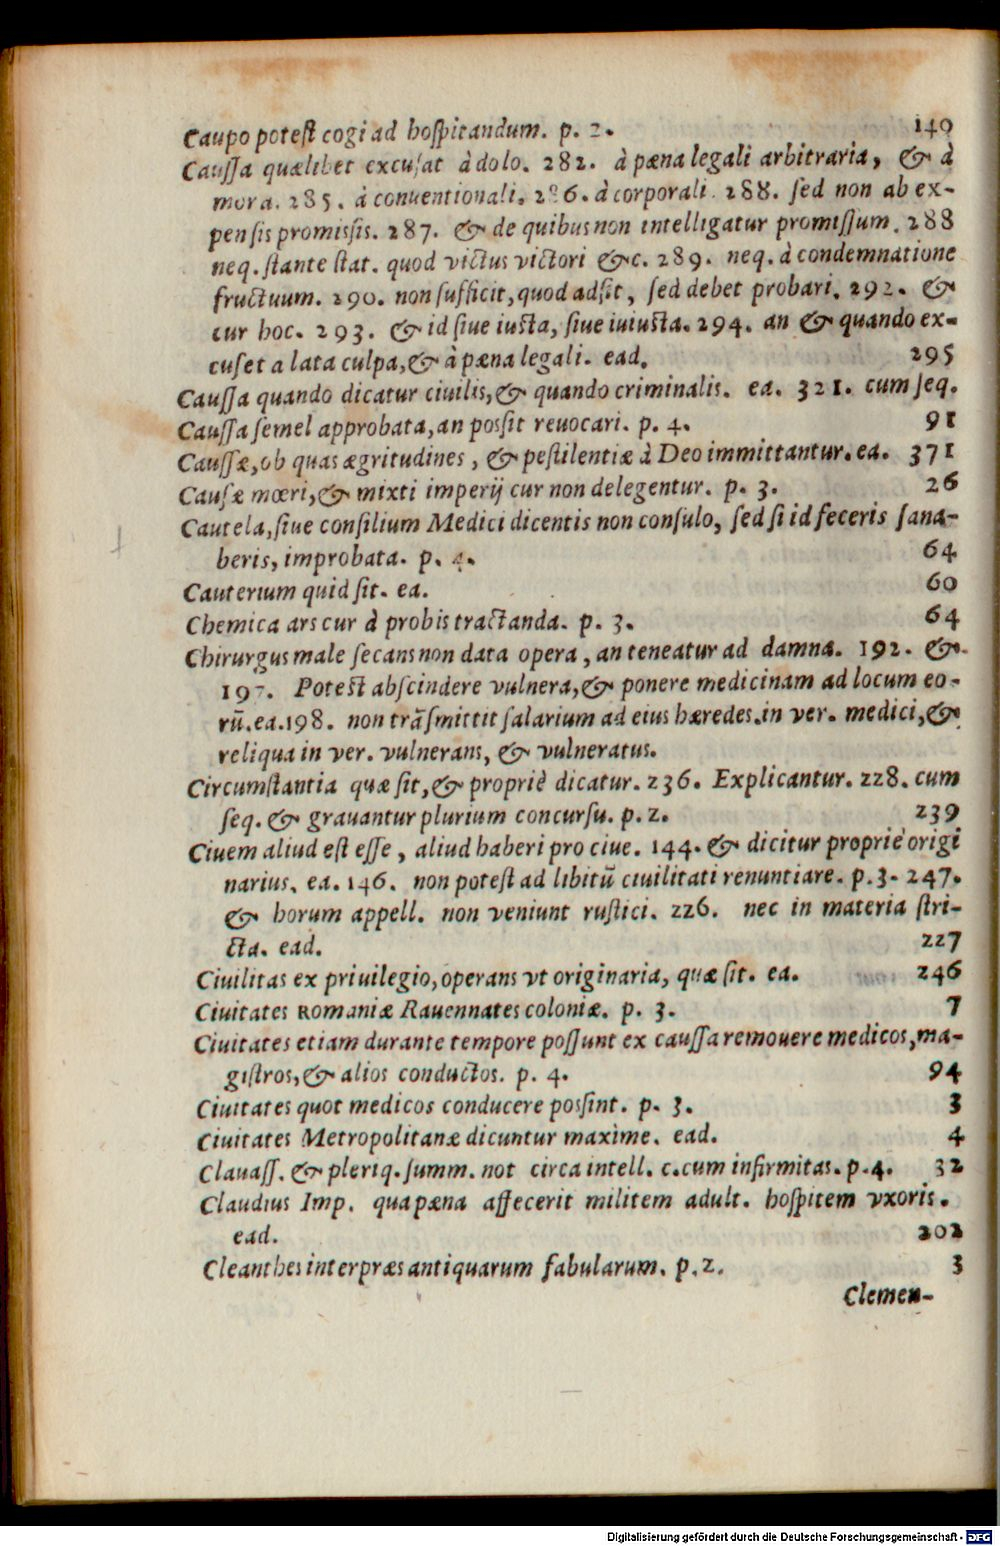 Caupo potest cogi ad hospitandum. p. 2. 140
Caussa quælibet excusat à dolo. 282. à pæna legali arbitraria, & à
mora. 285. à conuentionali. 286. à corporali. 288. sed non ab ex-
pensis promissis. 287. & de quibus non intelligatur promissum. 288
neq. stante stat. quod victus victori &c. 289. neq. à condemnatione
fructuum. 290. non sufficit, quod adsit, sed debet probari. 292. &
cur hoc. 293. & id siue iusta, siue iniusta. 294. an & quando ex-
cuset a lata culpa, & à pæna legali. ead. 295
Caussa quando dicatur ciuilis, & quando criminalis. ea. 321. cum seq.
Caussa semel approbata, an possit reuocari. p. 4. 91
Caussæ, ob quas ægritudines, & pestilentiæ à Deo immittantur. ea. 371
Causæ mœri, & mixti imperij cur non delegentur. p. 3. 26
Cautela, siue consilium Medici dicentis non consulo, sed si id feceris sana-
beris, improbata. p. 4. 64
Cauterium quid sit. ea. 60
Chemica ars cur à probis tractanda. p. 3. 64
Chirurgus male secans non data opera, an teneatur ad damna. 192. &
197. Potest abscindere vulnera, & ponere medicinam ad locum eo-
rū. ea. 198. non trāsmittit salarium ad eius hæredes. in ver. medici, &
reliqua in ver. vulnerans, & vulneratus.
Circumstantia quæ sit, & propriè dicatur. 236. Explicantur. 228. cum
seq. & grauantur plurium concursu. p. 2. 239
Ciuem aliud est esse, aliud haberi pro ciue. 144. & dicitur propriè origi
narius. ea. 146. non potest ad libitū ciuilitati renuntiare. p. 3. 247.
& horum appell. non veniunt rustici. 226. nec in materia stri-
cta. ead. 227
Ciuilitas ex priuilegio, operans vt originaria, quæ sit. ea. 246
Ciuitates Romaniæ Rauennates coloniæ. p. 3. 7
Ciuitates etiam durante tempore possunt ex caussa remouere medicos, ma-
gistros, & alios conductos. p. 4. 94
Ciuitates quot medicos conducere possint. p. 3. 3
Ciuitates Metropolitanæ dicuntur maxime. ead. 4
Clauass. & pleriq. summ. not circa intell. c. cum infirmitas. p. 4. 32
Claudius Imp. qua pæna affecerit militem adult. hospitem vxoris.
ead. 202
Cleanthes interpræs antiquarum fabularum. p. 2. 3
Clemen-
Digitalisierung gefördert durch die Deutsche Forschungsgemeinschaft - DFG